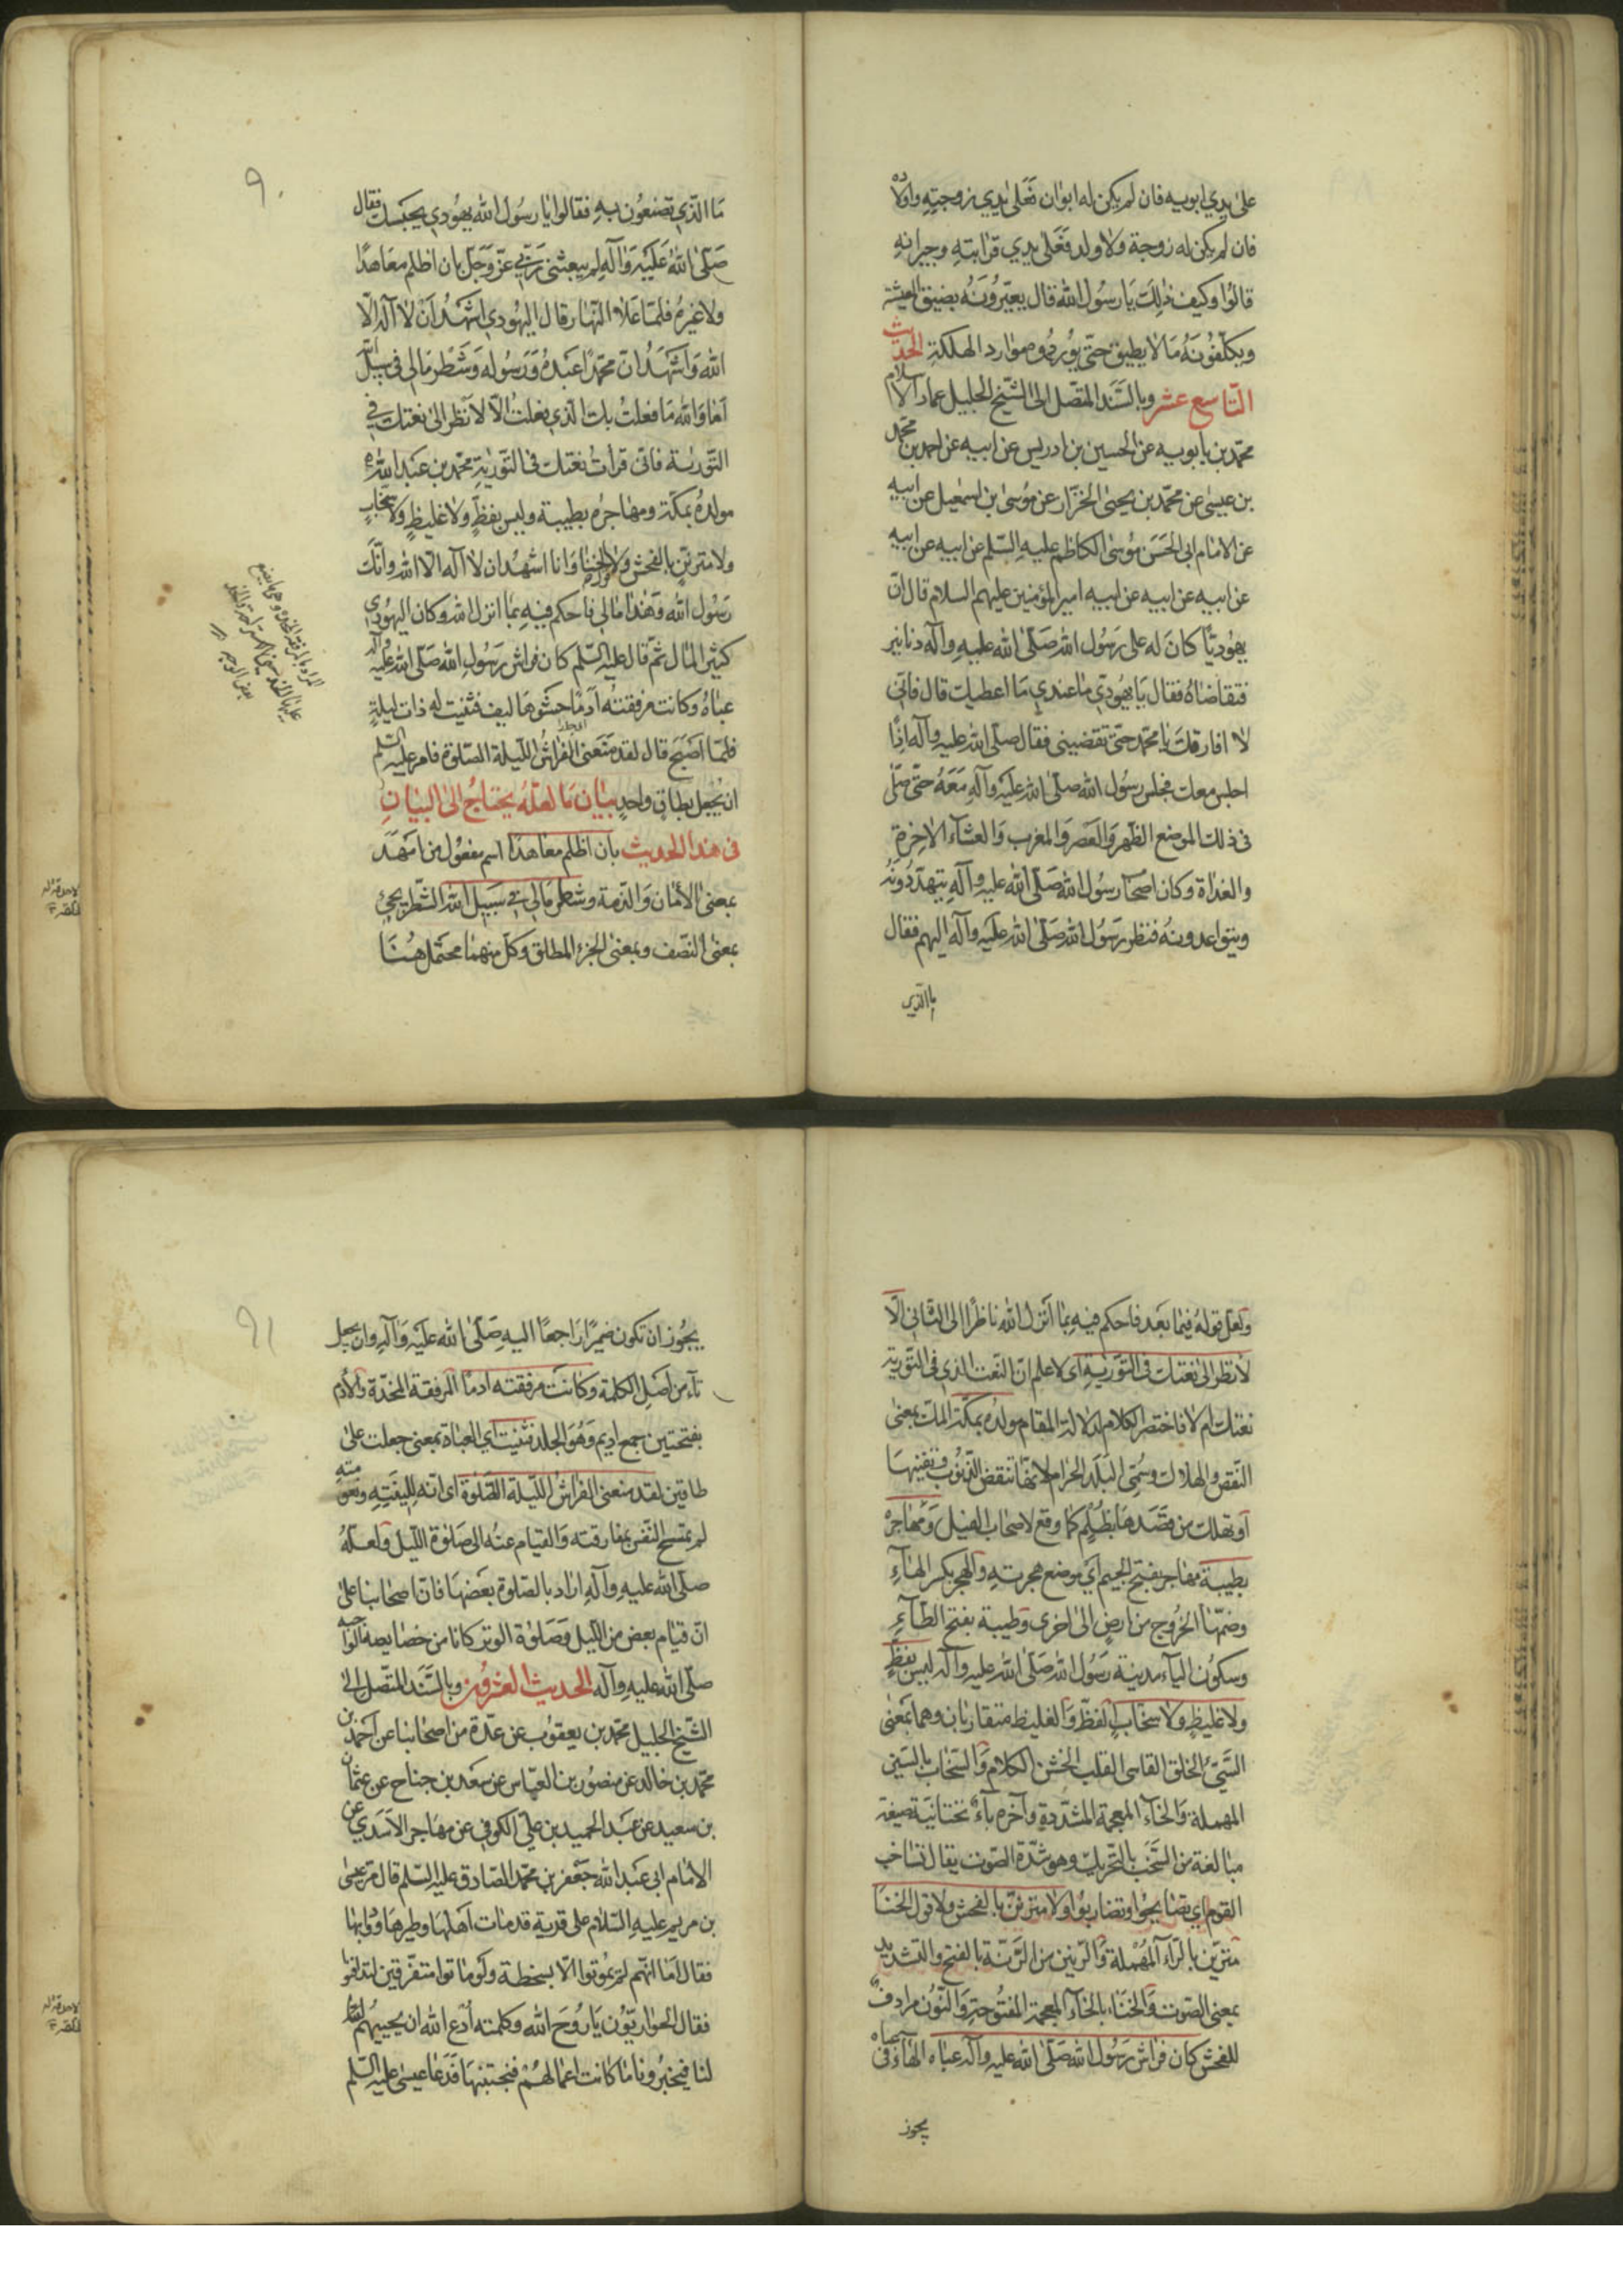 على يدي ابويه فان لم يكن له ابوان فعلى يدي زوجته واولاده
فان لم يكن له زوجة ولا ولد فعلى يدي قرابته وجيرانه
قالوا وكيف ذلك يا رسول الله قال يعيّرونه بضيق المعيشة
ويكلّفونه ما لا يطيق حتّى يوردوه موارد الهلكة الحديث
التّاسع عشر وبالسّند المتّصل الى الشّيخ الجليل عماد الاسلام
محمّد بن بابويه عن الحسين بن ادريس عن ابيه عن احمد بن محمّد
بن عيسى عن محمّد بن يحيى الخزّاز عن موسى بن اسمعيل عن ابيه
عن الامام ابى الحسن موسى الكاظم عليه السّلم عن ابيه عن ابيه
عن ابيه عن ابيه عن ابيه امير المؤمنين عليهم السلام قال انّ
يهوديّا كان له على رسول الله صلّى الله عليه وآله دنانير
فتقاضاه فقال يا يهودي ما عندي ما اعطيك قال فانّى
لا افارقك يا محمّد حتّى تقضينى فقال صلّى الله عليه وآله اذًا
اجلس معك فجلس رسول الله صلّى الله عليه وآله معه حتّى صلّى
فى ذلك الموضع الظّهر والعصر والمغرب والعشآء الاخرة
والغداة وكان اصحاب رسول الله صلّى الله عليه وآله يتهدّدونه
ويتواعدونه فنظر رسول الله صلّى الله عليه وآله اليهم فقال
ما الّذي
٩٠
ما الّذي تصنعون به فقالوا يا رسول الله يهودي يحبسك فقال
صلّى الله عليه وآله لم يبعثنى ربّي عزّ وجلّ بان اظلم معاهدًا
ولا غيره فلمّا علا النّهار قال اليهودي اشهد ان لا اله الّا
الله واشهد انّ محمّدًا عبده ورسوله وشطر مالي فى سبيل الله
اما والله ما فعلت بك الّذي فعلت الّا لانظر الى نعتك في
التّورية فانّى قرات نعتك فى التّورية محمّد بن عبد الله
مولده بمكّة ومهاجره بطيبة وليس بفظّ ولا غليظ ولا سخّاب
ولا مترنّن بالفحش ولا قول الخنا وانا اشهد ان لا اله الّا الله وانّك
رسول الله وهذا مالي فاحكم فيه بما انزل الله وكان اليهودي
كثير المال ثمّ قال عليه السّلم كان فراش رسول الله صلّى الله عليه وآله
عباه وكانت مرفقته ادمًا حشوها ليف فثنيت له ذات ليلة
فلمّا اصبح قال لقد منعنى الفراش اللّيلة الصّلوة فامر عليه السّلم
ان يجعل بطاق واحد بيان ما لعلّه يحتاج الى البيان
فى هذا الحديث بان اظلم معاهدًا اسم مفعول من
بمعنى الأمان والذّمة وشطر مالي في سبيل الله الشّطر يجئ
بمعنى النّصف وبمعنى الجزء المطلق وكلّ منهما محتمل هنا
ولعلّ قوله فيما بعد فاحكم فيه بما انزل الله ناظرًا الى الثّانى الّا
لأنظر الى نعتك فى التّورية اى لاعلم انّ النّعت الذي فى التّورية
نعتك ام لا فاختصر الكلام لدلالة المقام مولده بمكّة المكّ بمعنى
النّقص والهلاك وسمّى البلد الحرام لانّها تنقص الذّنوب وتفنيها
او تهلك من قصدها بظلم كما وقع لاصحاب الفيل ومهاجره
بطيبة مهاجر بفتح الجيم اي موضع هجرته والهجر بكسر الهآء
وضمّها الخروج من ارض الى اخرى وطيبة بفتح الطّآء
وسكون اليآء مدينة رسول الله صلّى الله عليه وآله ليس بفظّ
ولا غليظ ولا سخّاب الفظّ والغليظ متقاربان وهما بمعنى
السّيّئ الخلق القاسى القلب الخشن الكلام والسّخاب بالسّين
المهملة والخآء المعجمة المشدّدة وآخره بآء تحتانيّة صيغة
مبالغة من السّخب بالتّحريك وهو شدّة الصّوت يقال تساخب
القوم اي تصايحوا وتضاربوا ولا مترنّن بالفحش ولا قول الخنا
مترنّن بالرّآء المهملة والرّنين من الرّنّة بالفتح والتّشديد
بمعنى الصّوت والخنا بالخآء المعجمة المفتوحة والنّون مرادف
للفحش كان فراش رسول الله صلّى الله عليه وآله عباه الهآء فى عباه
يجوز
٩١
يجوز ان تكون ضميرًا راجعًا اليه صلّى الله عليه وآله وان يجعل
تآء من اصل الكلمة وكانت مرفقته ادمًا المرفقة المخدّة والأدم
بفتحتين جمع اديم وهو الجلد فثنيت اي العباة بمعنى جعلت على
طاقين لقد منعنى الفراش اللّيلة الصّلوة اى انّه للينته ونعومته
لم تسمح النّفس بمفارقته والقيام عنه الى صلوة اللّيل ولعلّه
صلّى الله عليه وآله اراد بالصّلوة بعضها فانّ اصحابنا على
انّ قيام بعض من اللّيل وصلوة الوتر كانا من خصايصه الواجبة
صلّى الله عليه وآله الحديث العشرون وبالسّند المتّصل الى
الشّيخ الجليل محمّد بن يعقوب عن عدّة من اصحابنا عن احمد بن
محمّد بن خالد عن منصور بن العبّاس عن سعيد بن جناح عن عثمان
بن سعيد عن عبد الحميد بن علي الكوفي عن مهاجر الاسدي عن
الامام ابى عبد الله جعفر بن محمّد الصّادق عليه السّلم قال مرّ عيسى
بن مريم عليه السّلام على قرية قد مات اهلها وطيرها ودوابها
فقال اما انّهم لم يموتوا الّا بسخطة ولو ماتوا متفرّقين لتدافنوا
فقال الحواريّون يا روح الله وكلمته ادع الله ان يحييهم
لنا فيخبرونا ما كانت اعمالهم فنجتنبها فدعا عيسى عليه السّلم